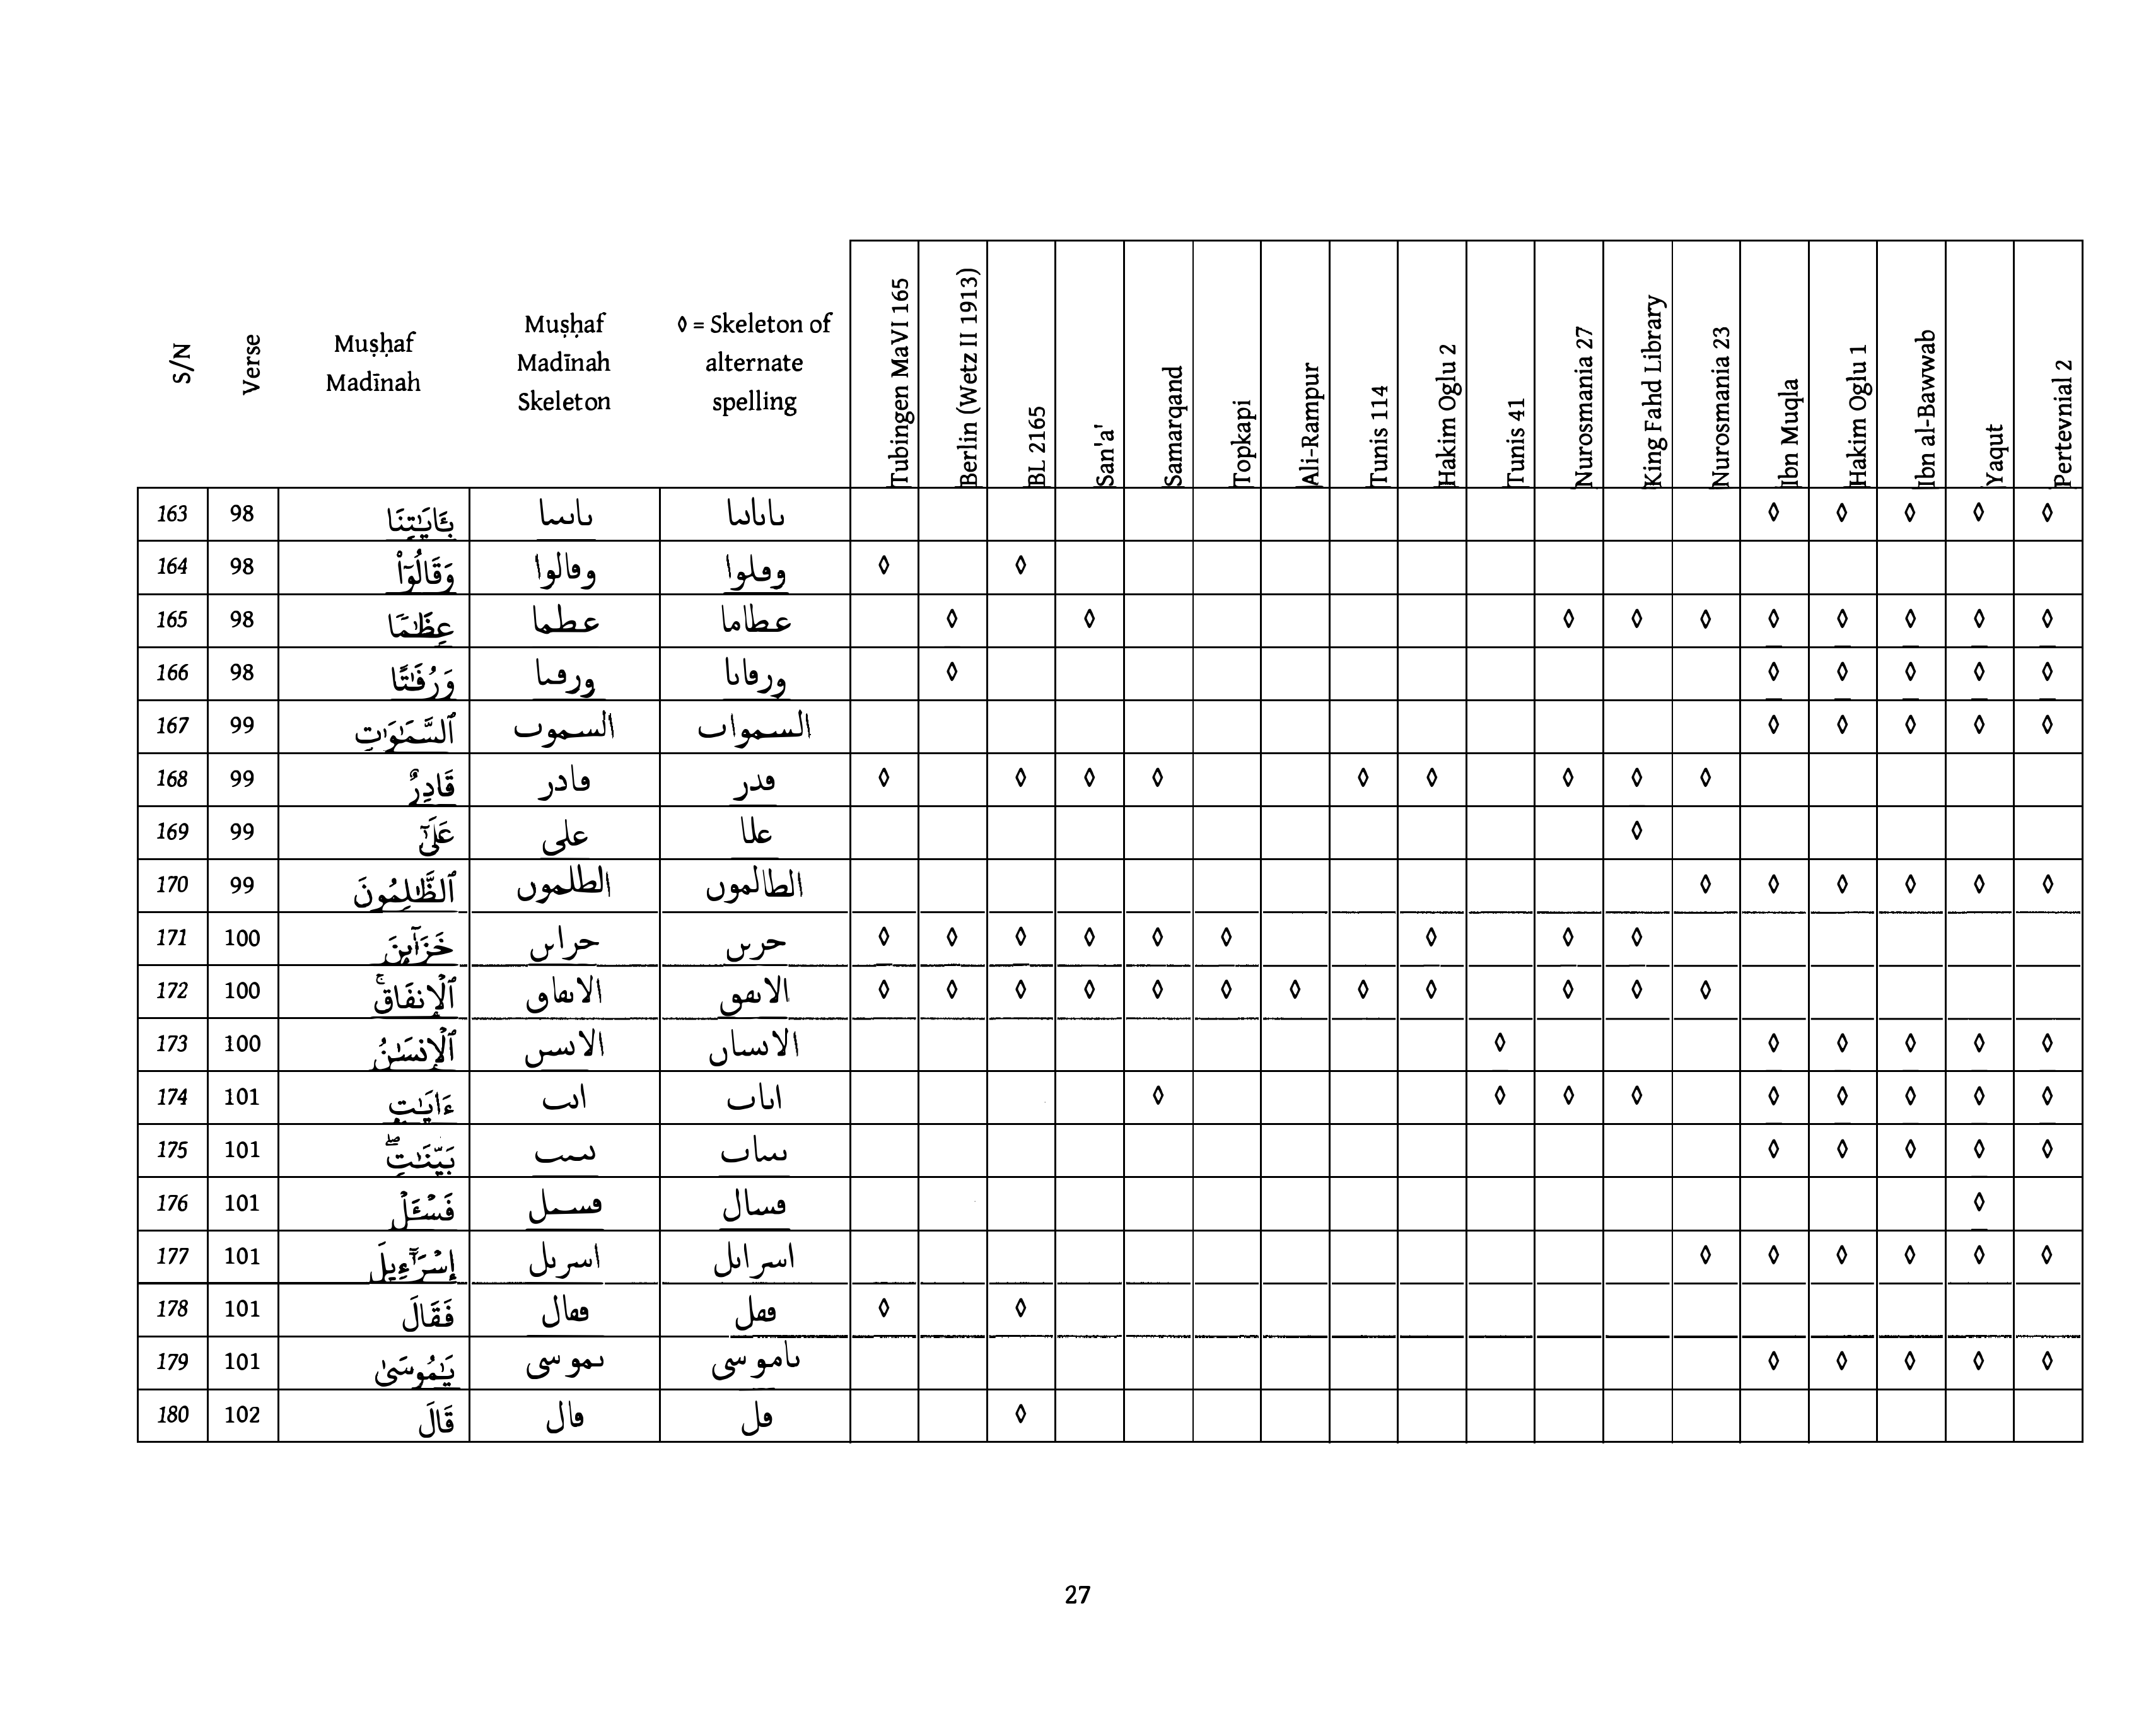 S/N Verse Muṣḥaf Madīnah Muṣḥaf Madīnah Skeleton ◊ = Skeleton of alternate spelling Tubingen MaVI 165 Berlin (Wetz II 1913) BL 2165 San'a' Samarqand Topkapi Ali-Rampur Tunis 114 Hakim Oglu 2 Tunis 41 Nurosmania 27 King Fahd Library Nurosmania 23 Ibn Muqla Hakim Oglu 1 Ibn al-Bawwab Yaqut Pertevnial 2
163 98 بِـَٔايَـٰتِنَا ٮاٮٮٮا ٮاٮاٮٮا ◊ ◊ ◊ ◊ ◊
164 98 وَقَالُوٓا۟ وڡالوا وڡلوا ◊ ◊
165 98 عِظَـٰمًا عطما عطاما ◊ ◊ ◊ ◊ ◊ ◊ ◊ ◊ ◊ ◊
166 98 وَرُفَـٰتًا ورڡٮا ورڡاٮا ◊ ◊ ◊ ◊ ◊ ◊
167 99 ٱلسَّمَـٰوَٰتِ السموٮ السمواٮ ◊ ◊ ◊ ◊ ◊
168 99 قَادِرٌ ڡادر ڡدر ◊ ◊ ◊ ◊ ◊ ◊ ◊ ◊ ◊
169 99 عَلَىٰٓ على علا ◊
170 99 ٱلظَّـٰلِمُونَ الطلموں الطالموں ◊ ◊ ◊ ◊ ◊ ◊
171 100 خَزَآئِنَ حراٮں حرٮں ◊ ◊ ◊ ◊ ◊ ◊ ◊ ◊ ◊
172 100 ٱلْإِنفَاقِ ۚ الاٮڡاٯ الاٮڡٯ ◊ ◊ ◊ ◊ ◊ ◊ ◊ ◊ ◊ ◊ ◊ ◊
173 100 ٱلْإِنسَـٰنُ الاٮسں الاٮساں ◊ ◊ ◊ ◊ ◊ ◊
174 101 ءَايَـٰتٍۭ اٮٮ اٮاٮ ◊ ◊ ◊ ◊ ◊ ◊ ◊ ◊ ◊
175 101 بَيِّنَـٰتٍ ۖ ٮٮٮٮ ٮٮٮاٮ ◊ ◊ ◊ ◊ ◊
176 101 فَسْـَٔلْ ڡسٮل ڡسال ◊
177 101 إِسْرَٰٓءِيلَ اسرٮل اسراٮل ◊ ◊ ◊ ◊ ◊ ◊
178 101 فَقَالَ ڡٯال ڡٯل ◊ ◊
179 101 يَـٰمُوسَىٰ ٮموسى ٮاموسى ◊ ◊ ◊ ◊ ◊
180 102 قَالَ ٯال ٯل ◊
27